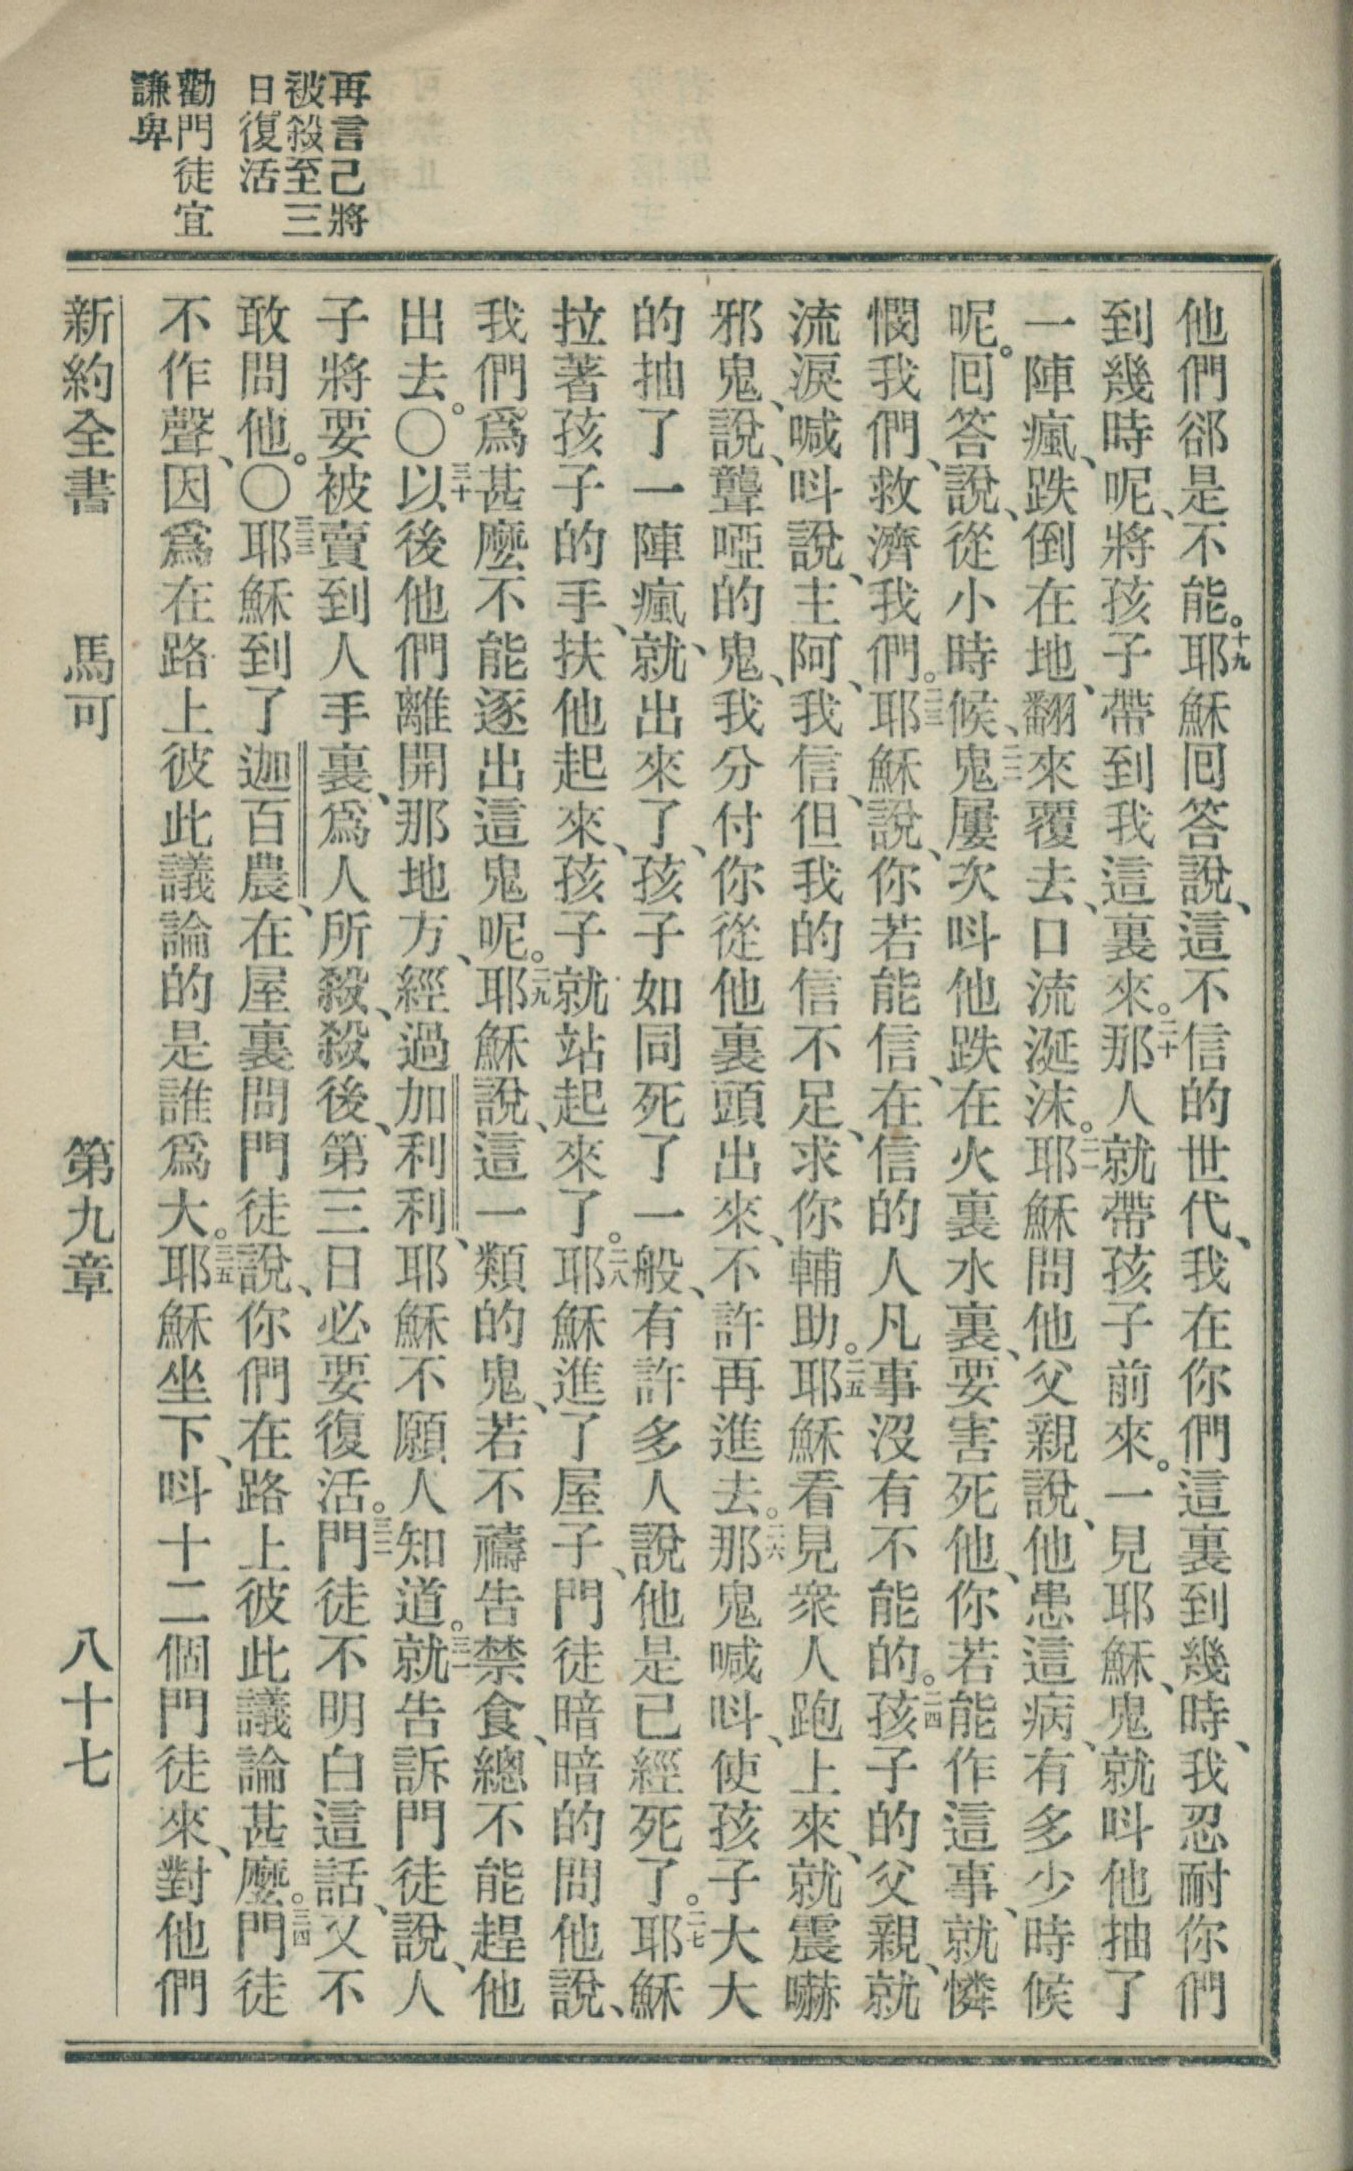 再言己將
被殺至三
日復活
勸門徒宜
謙卑
他們郤是不能。十九耶穌囘答說、這不信的世代、我在你們這裏到幾時、我忍耐你們
到幾時呢、將孩子帶到我這裏來。二十那人就帶孩子前來。一見耶穌、鬼就呌他抽了
一陣瘋、跌倒在地、翻來覆去、口流涎沫。二一耶穌問他父親說、他患這病、有多少時候
呢。囘答說、從小時候、二二鬼屢次呌他跌在火裏水裏、要害死他、你若能作這事、就憐
憫我們、救濟我們。二三耶穌說、你若能信、在信的人凡事沒有不能的。二四孩子的父親、就
流淚喊呌說、主阿、我信、但我的信不足、求你輔助。二五耶穌看見衆人跑上來、就震嚇
邪鬼、說、聾啞的鬼、我分付你從他裏頭出來、不許再進去。二六那鬼喊呌、使孩子大大
的抽了一陣瘋、就出來了、孩子如同死了一般、有許多人說他是已經死了。二七耶穌
拉著孩子的手、扶他起來、孩子就站起來了。二八耶穌進了屋子、門徒暗暗的問他說、
我們爲甚麼不能逐出這鬼呢。二九耶穌說、這一類的鬼、若不禱告禁食、總不能趕他
出去。〇三十以後他們離開那地方、經過加利利、耶穌不願人知道。三一就告訴門徒說、人
子將要被賣到人手裏、爲人所殺、殺後、第三日必要復活。三二門徒不明白這話、又不
敢問他。〇三三耶穌到了迦百農、在屋裏問門徒說、你們在路上彼此議論甚麼。三四門徒
不作聲、因爲在路上彼此議論的是誰爲大。三五耶穌坐下、呌十二個門徒來、對他們
新約全書　馬可　第九章　八十七